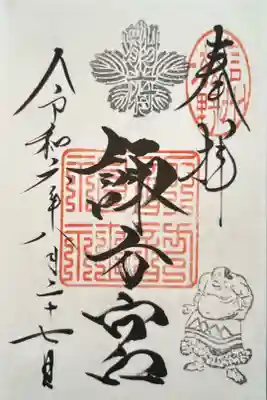 奉拝
諏方宮
令和六年八月二十七日